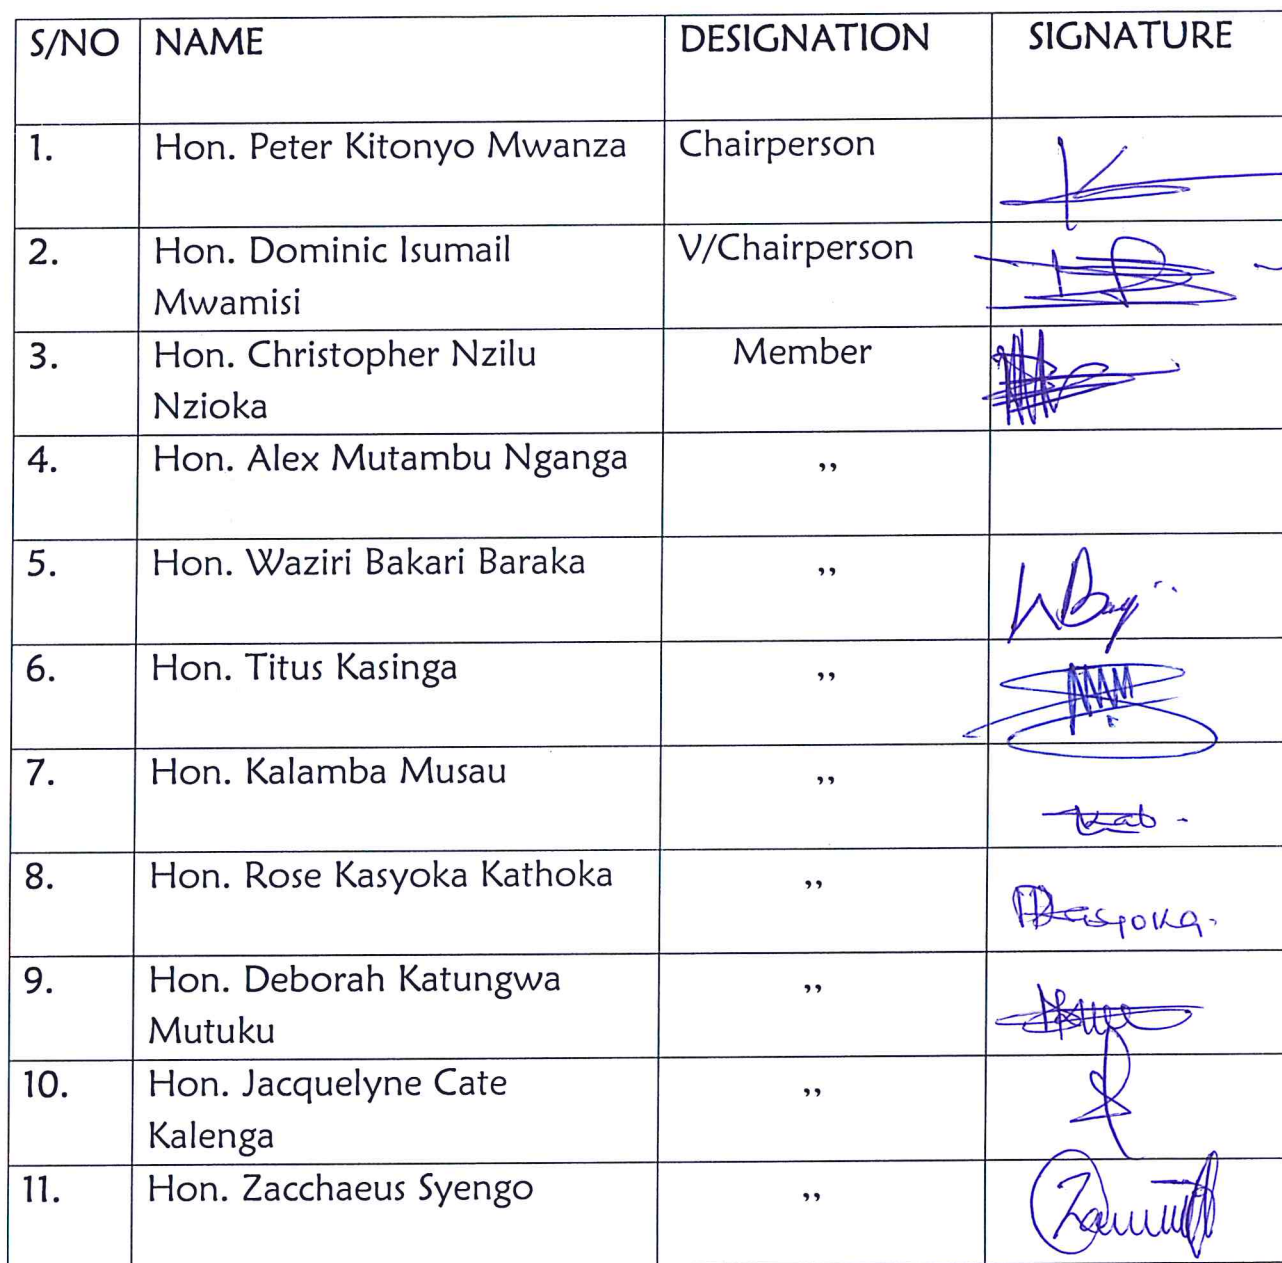 S/NO NAME DESIGNATION SIGNATURE
1. Hon. Peter Kitonyo Mwanza Chairperson
2. Hon. Dominic Isumail V/Chairperson
Mwamisi
3. Hon. Christopher Nzilu Member
Nzioka
4. Hon. Alex Mutambu Nganga ,,
5. Hon. Waziri Bakari Baraka ,,
6. Hon. Titus Kasinga ,,
7. Hon. Kalamba Musau ,,
8. Hon. Rose Kasyoka Kathoka ,,
9. Hon. Deborah Katungwa ,,
Mutuku
10. Hon. Jacquelyne Cate ,,
Kalenga
11. Hon. Zacchaeus Syengo ,,